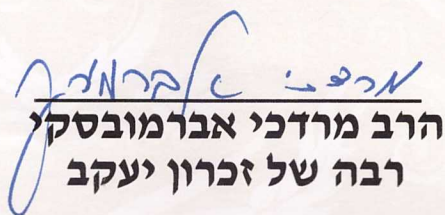 מרדכי אברמובסקי
הרב מרדכי אברמובסקי
רבה של זכרון יעקב